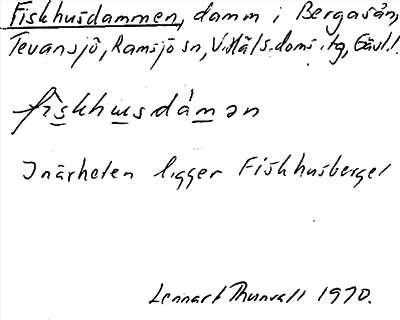 Fiskhusdammen, damm i Bergaån,
Tevansjö, Ramsjö sn, V. Häls. doms. tg, Gävl. l.
fiskhusdámən
I närheten ligger Fiskhusberget
Lennart Thunvall 1970.